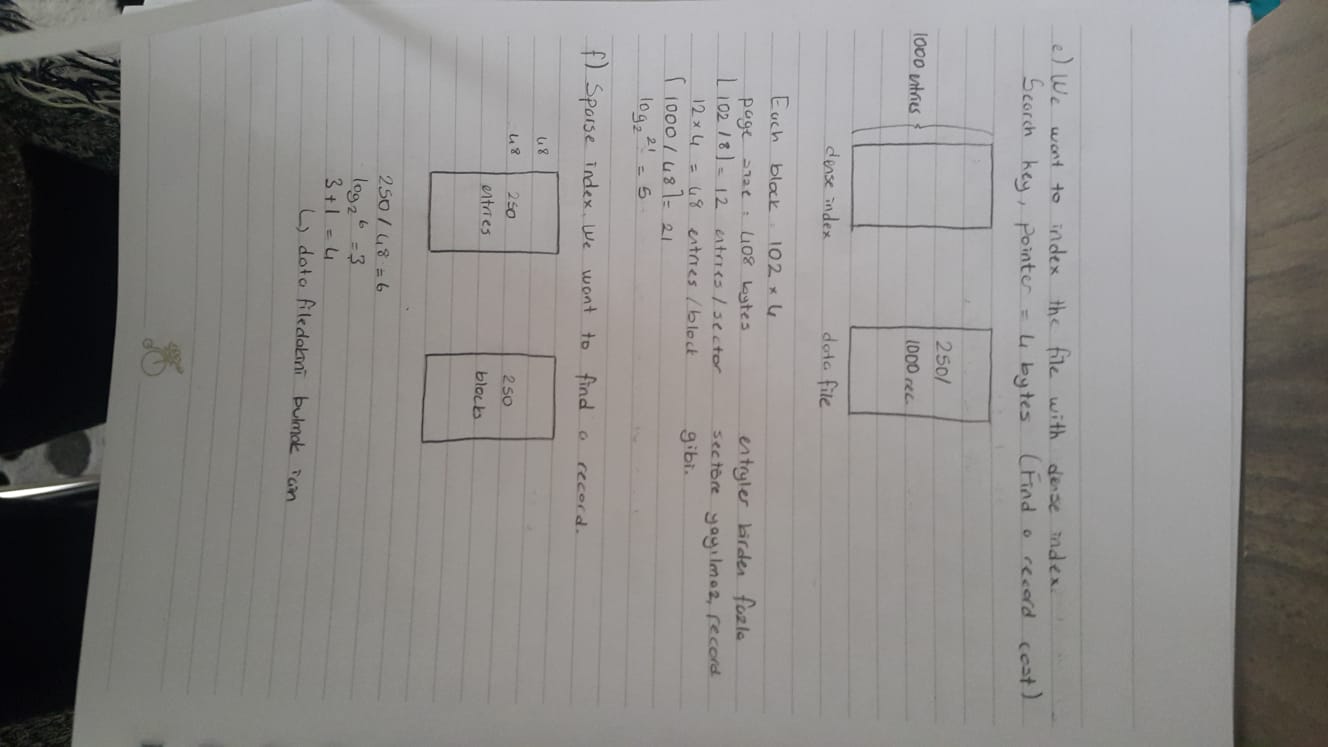 e) We want to index the file with dense index.
Search key, pointer = 4 bytes (Find a record cost)
1000 entries
250/
1000 rec.
dense index
data file
Each block : 102 x 4
page size : 408 bytes
⌊102 / 8⌋ = 12 entries / sector
12 x 4 = 48 entries / block
⌈1000 / 48⌉ = 21
log₂²¹ = 5
entryler birden fazla
sectöre yayılmaz, record
gibi.
f) Sparse index. We want to find a record.
48
48
250
entries
250
blocks
250 / 48 = 6
log₂⁶ = 3
3 + 1 = 4
↳ data filedakini bulmak için